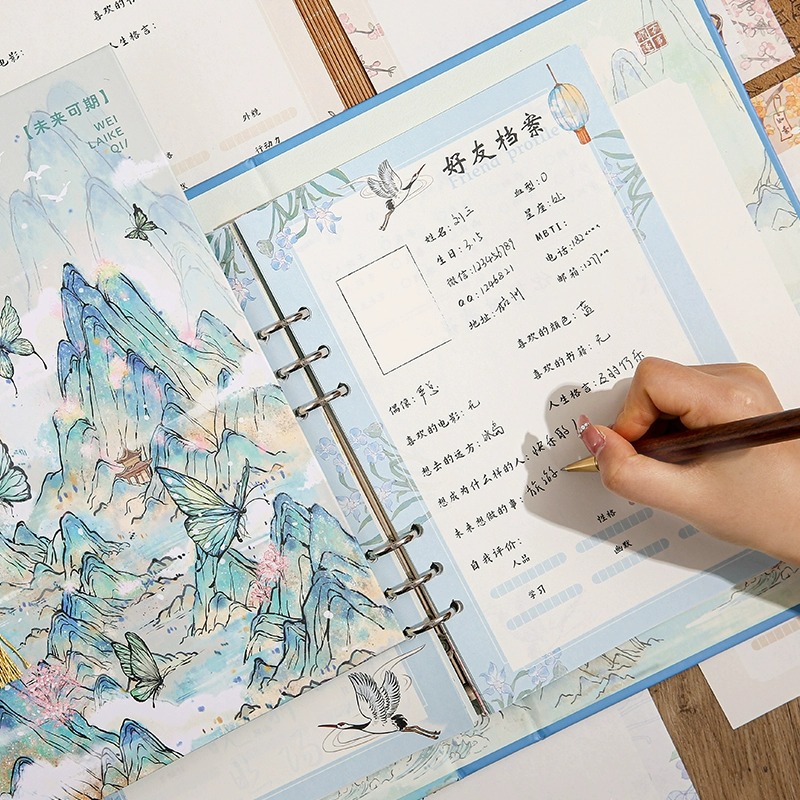 喜欢的
人生格言:
电影:
外貌
行动力
【未来可期】
WEI
LAIKE
QI/
好友档案
Friend Profile
姓名:刘三
血型:O
生日:3.15
星座:
微信:123456789
MBTI:
QQ:1246821
电话:182
地址:
邮箱:1277
喜欢的颜色:蓝
喜欢的书籍:无
偶像:
人生格言:
喜欢的电影:无
想去的远方:
想成为什么样的人:快乐
未来想做的事:旅游
自我评价:
人品
性格
学习
幽默